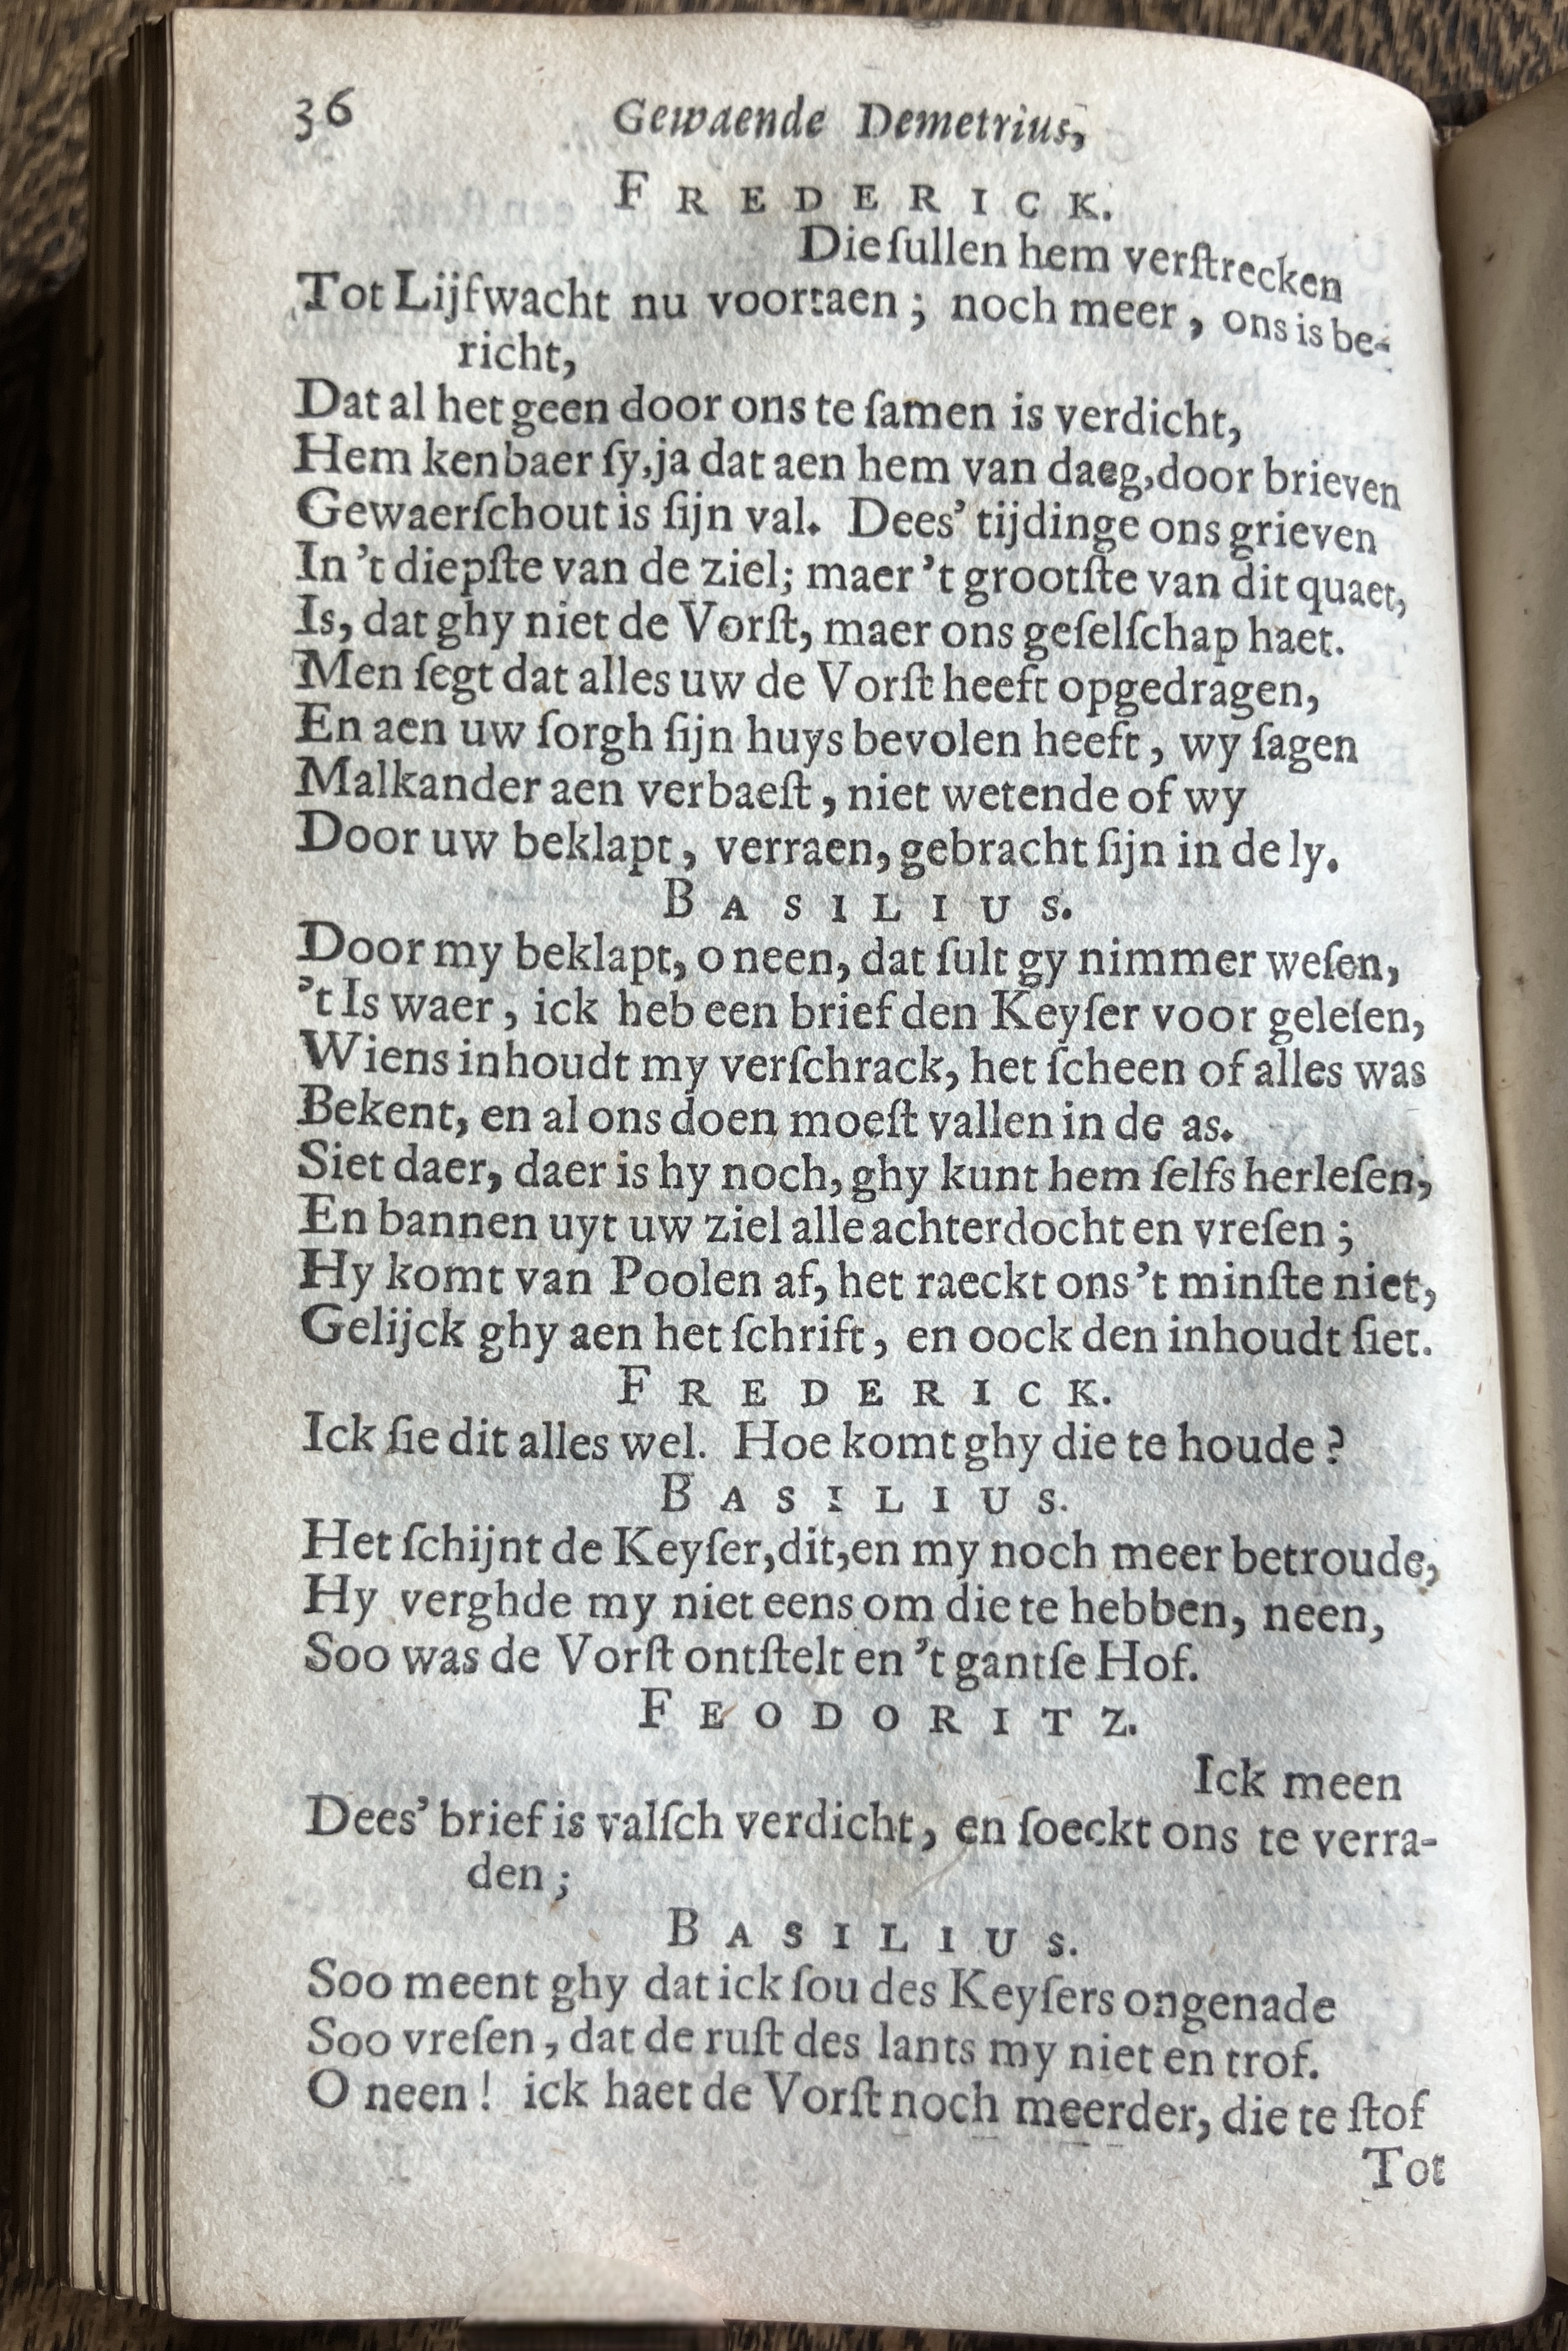 36 Gewaende Demetrius,
FREDERICK.
Die ſullen hem verſtrecken
Tot Lijfwacht nu voortaen ; noch meer , ons is be-
richt,
Dat al het geen door ons te ſamen is verdicht,
Hem kenbaer ſy,ja dat aen hem van daeg,door brieven
Gewaerſchout is ſijn val. Dees’ tijdinge ons grieven
In ’t diepſte van de ziel; maer ’t grootſte van dit quaet,
Is, dat ghy niet de Vorſt, maer ons geſelſchap haet.
Men ſegt dat alles uw de Vorſt heeft opgedragen,
En aen uw ſorgh ſijn huys bevolen heeft , wy ſagen
Malkander aen verbaeſt , niet wetende of wy
Door uw beklapt , verraen, gebracht ſijn in de ly.
BASILIUS.
Door my beklapt, o neen, dat ſult gy nimmer weſen,
’t Is waer , ick heb een brief den Keyſer voor geleſen,
Wiens inhoudt my verſchrack, het ſcheen of alles was
Bekent, en al ons doen moeſt vallen in de as.
Siet daer, daer is hy noch, ghy kunt hem ſelfs herleſen,
En bannen uyt uw ziel alle achterdocht en vreſen ;
Hy komt van Poolen af, het raeckt ons ’t minſte niet,
Gelijck ghy aen het ſchrift , en oock den inhoudt ſiet.
FREDERICK.
Ick ſie dit alles wel. Hoe komt ghy die te houde ?
BASILIUS.
Het ſchijnt de Keyſer,dit,en my noch meer betroude,
Hy verghde my niet eens om die te hebben, neen,
Soo was de Vorſt ontſtelt en ’t gantſe Hof.
FEODORITZ.
Ick meen
Dees’ brief is valſch verdicht , en ſoeckt ons te verra-
den ;
BASILIUS.
Soo meent ghy dat ick ſou des Keyſers ongenade
Soo vreſen , dat de ruſt des lants my niet en trof.
O neen ! ick haet de Vorſt noch meerder, die te ſtof
Tot